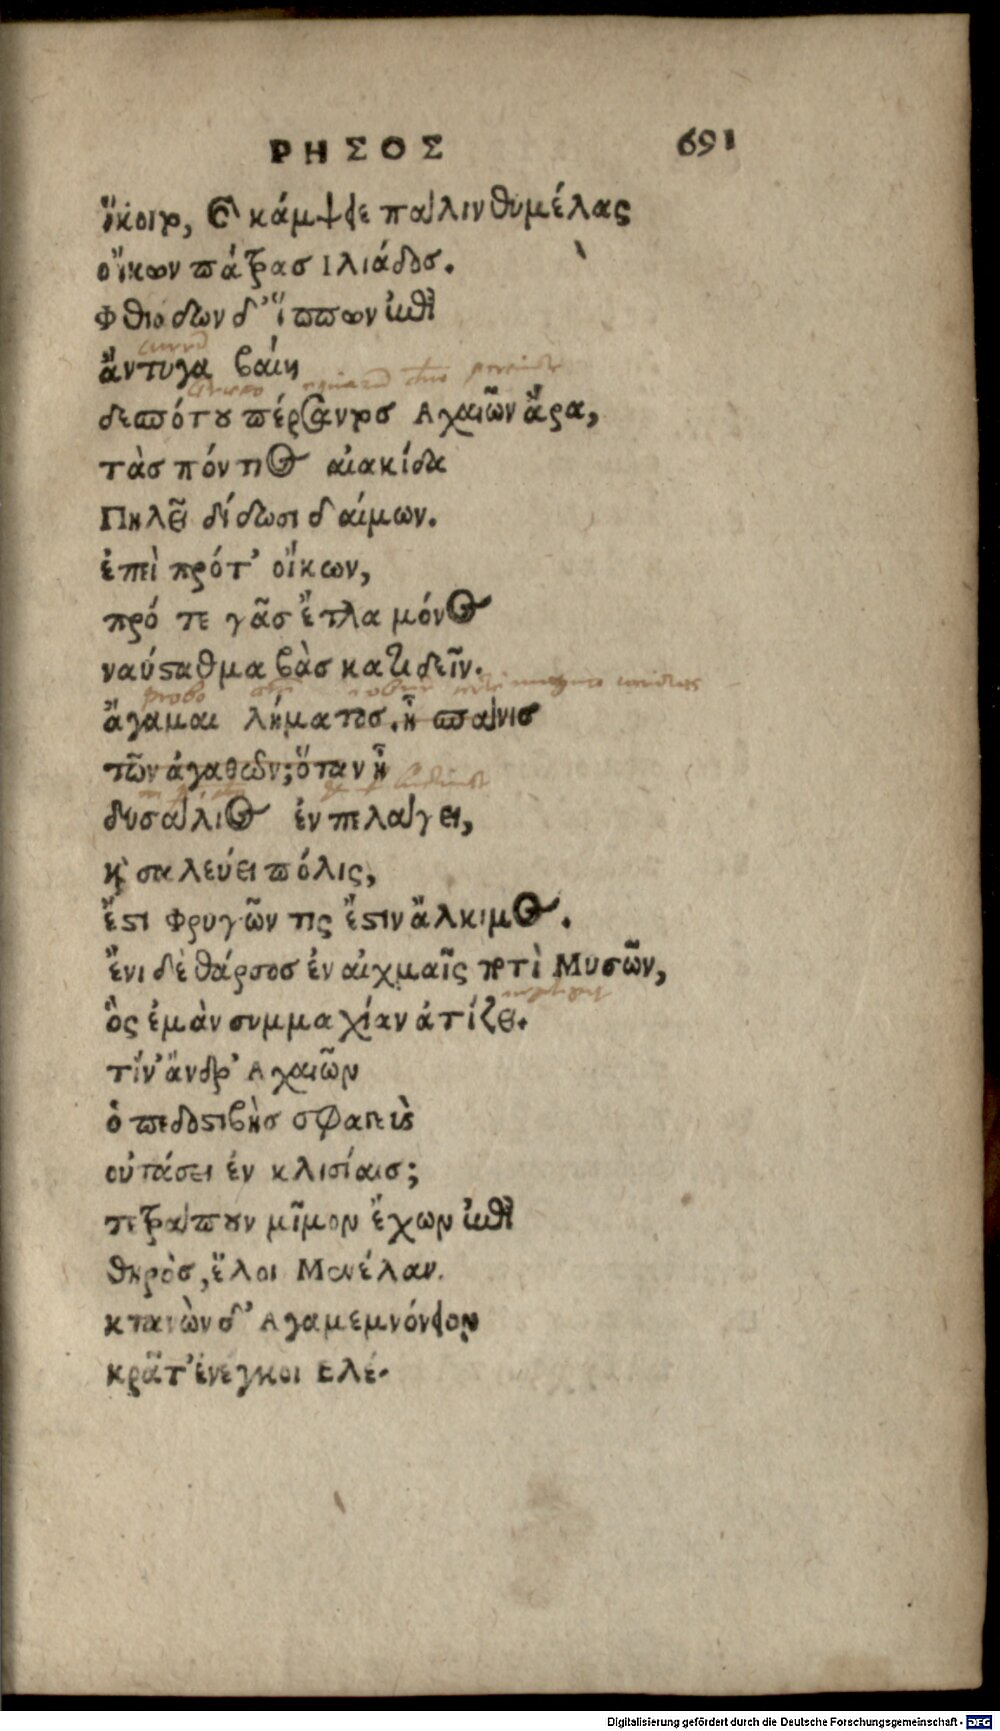 ΡΗΣΟΣ 691
ἵκοιτο, καὶ κάμψειε πάλιν θυμέλας
οἴκων πάτρας Ιλιάδος.
Φθιάδων δ' ἵππων ποτ' ἐπ'
ἄντυγα βαίη
δεσπότου πέρσαντος Αχαιῶν ἄρα,
τὰς πόντιος αἰακίδα
Πηλεῖ δίδωσι δαίμων.
ἐπεὶ πρότ' οἴκων,
πρό τε γᾶς ἔτλα μόνος
ναύσταθμα βὰς κατιδεῖν.
ἄγαμαι λήματος. ἦ σπάνις
τῶν ἀγαθῶν; ὅταν ᾖ
δυσάλιος ἐν πελάγει,
καὶ σαλεύει πόλις,
ἔστι Φρυγῶν τις ἔστιν ἄλκιμος.
ἔνι δὲ θάρσος ἐν αἰχμαῖς ποτὶ Μυσῶν,
ὃς ἐμὰν συμμαχίαν ἀτίζει.
τίν' ἄνδρ' Αχαιῶν
ὁ πεδοστιβὴς σφαγεὺς
οὐτάσει ἐν κλισίαις;
τετράπουν μῖμον ἔχων ἐπὶ
θηρὸς, ἕλοι Μενέλαν.
κτανὼν δ' Αγαμεμνόνειον
κρᾶτ' ἐνέγκοι Ελέ-
Digitalisierung gefördert durch die Deutsche Forschungsgemeinschaft - DFG